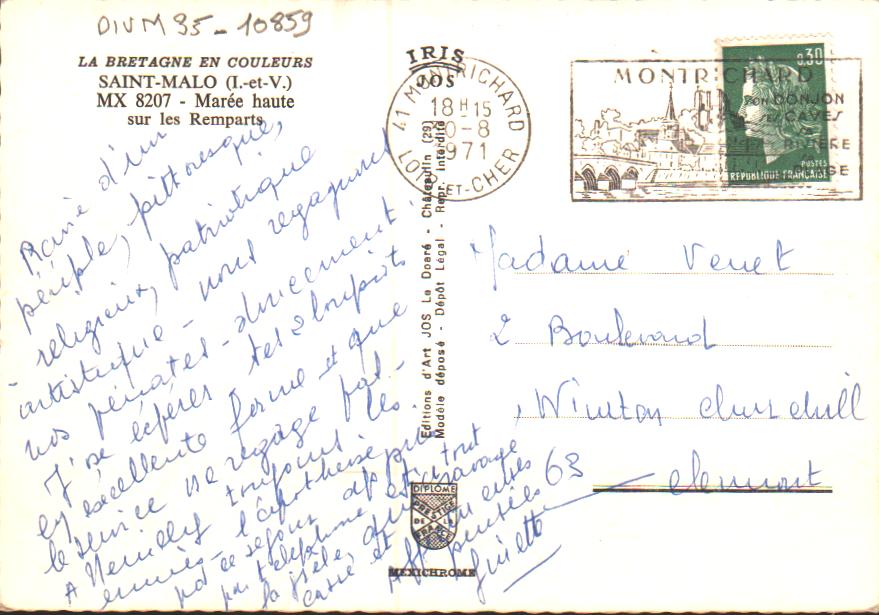 DIVM 35-10859
LA BRETAGNE EN COULEURS
SAINT-MALO (I.-et-V.)
MX 8207 - Marée haute
sur les Remparts
IRIS
JOS
41 MONTRICHARD
18H15
0-8
1971
LOIR-ET-CHER
MONTRICHARD
SON DONJON
SES CAVES
SA RIVIÈRE
0,30
POSTES
REPUBLIQUE FRANÇAISE
Ravie d'un
périple, pittoresque,
religieux, patriotique
- artistique - nous regagnons
nos pénates - doucement.
J'ose espérer tes 2 loupiots
en excellente forme et que
le service ne regage pas -
A toujours les
ennuis - l'apothéose
pas ce séjour
par téléphone et tout
la grêle,
casse et
Aff pensées
Editions d'Art JOS Le Doaré - Châteaulin (29)
Modèle déposé - Dépôt Légal - Repr. Interdite
Madame Venet
2 Boulevard
Winston Churchill
63 Clermont
DIPLOME
PRESTIGE
DE LA
FRANCE
MEXICHROME